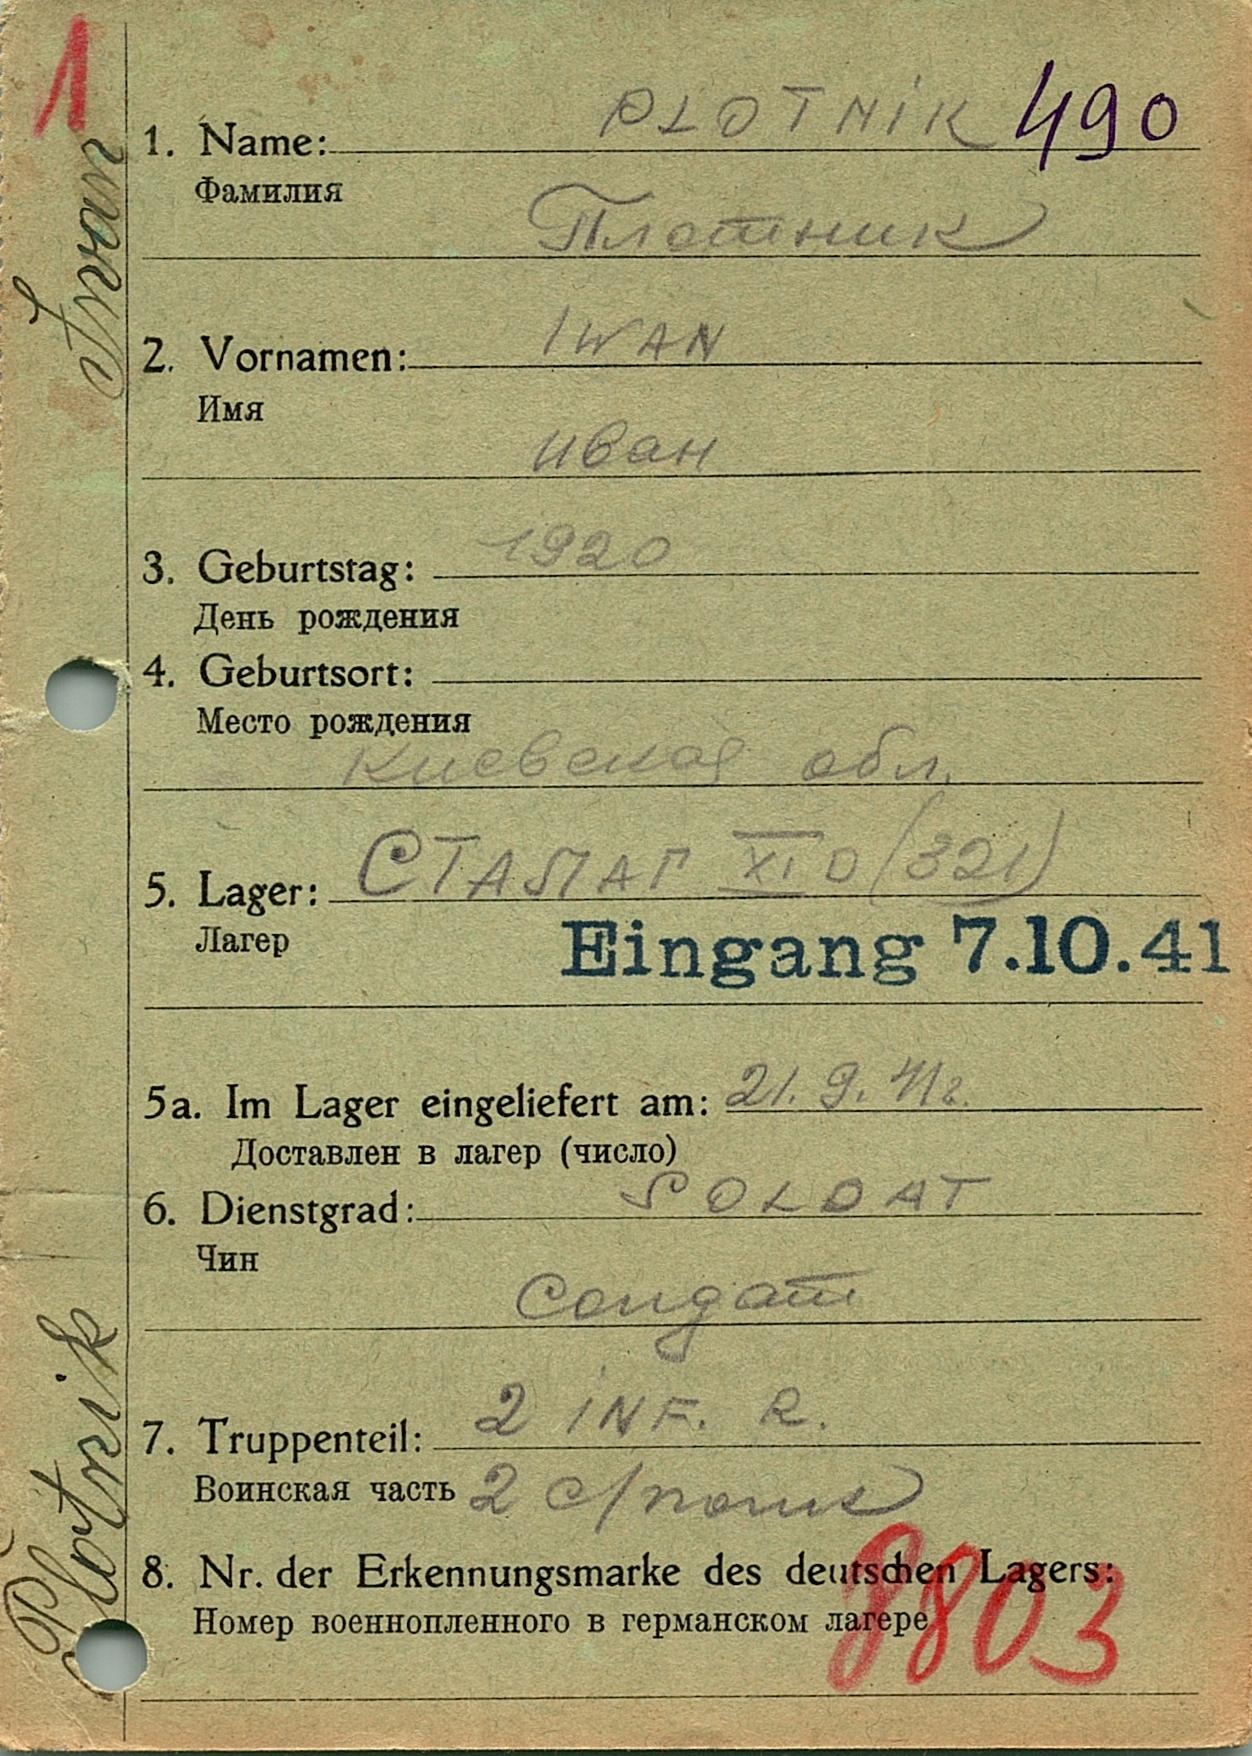 1
Iwan
Plotnik
PLOTNIK 490
1. Name:
Фамилия
Плотник
IWAN
2. Vornamen:
Имя
иван
3. Geburtstag: 1920
День рождения
4. Geburtsort:
Место рождения
Киевская обл.
5. Lager: СТАЛАГ XI D (321)
Лагер
Eingang 7.10.41
5a. Im Lager eingeliefert am: 21. 9. 41 г.
Доставлен в лагер (число)
6. Dienstgrad: SOLDAT
Чин
Солдат
7. Truppenteil: 2 INF. R.
Воинская часть 2 с/полк
8. Nr. der Erkennungsmarke des deutschen Lagers:
Номер военнопленного в германском лагере
8803